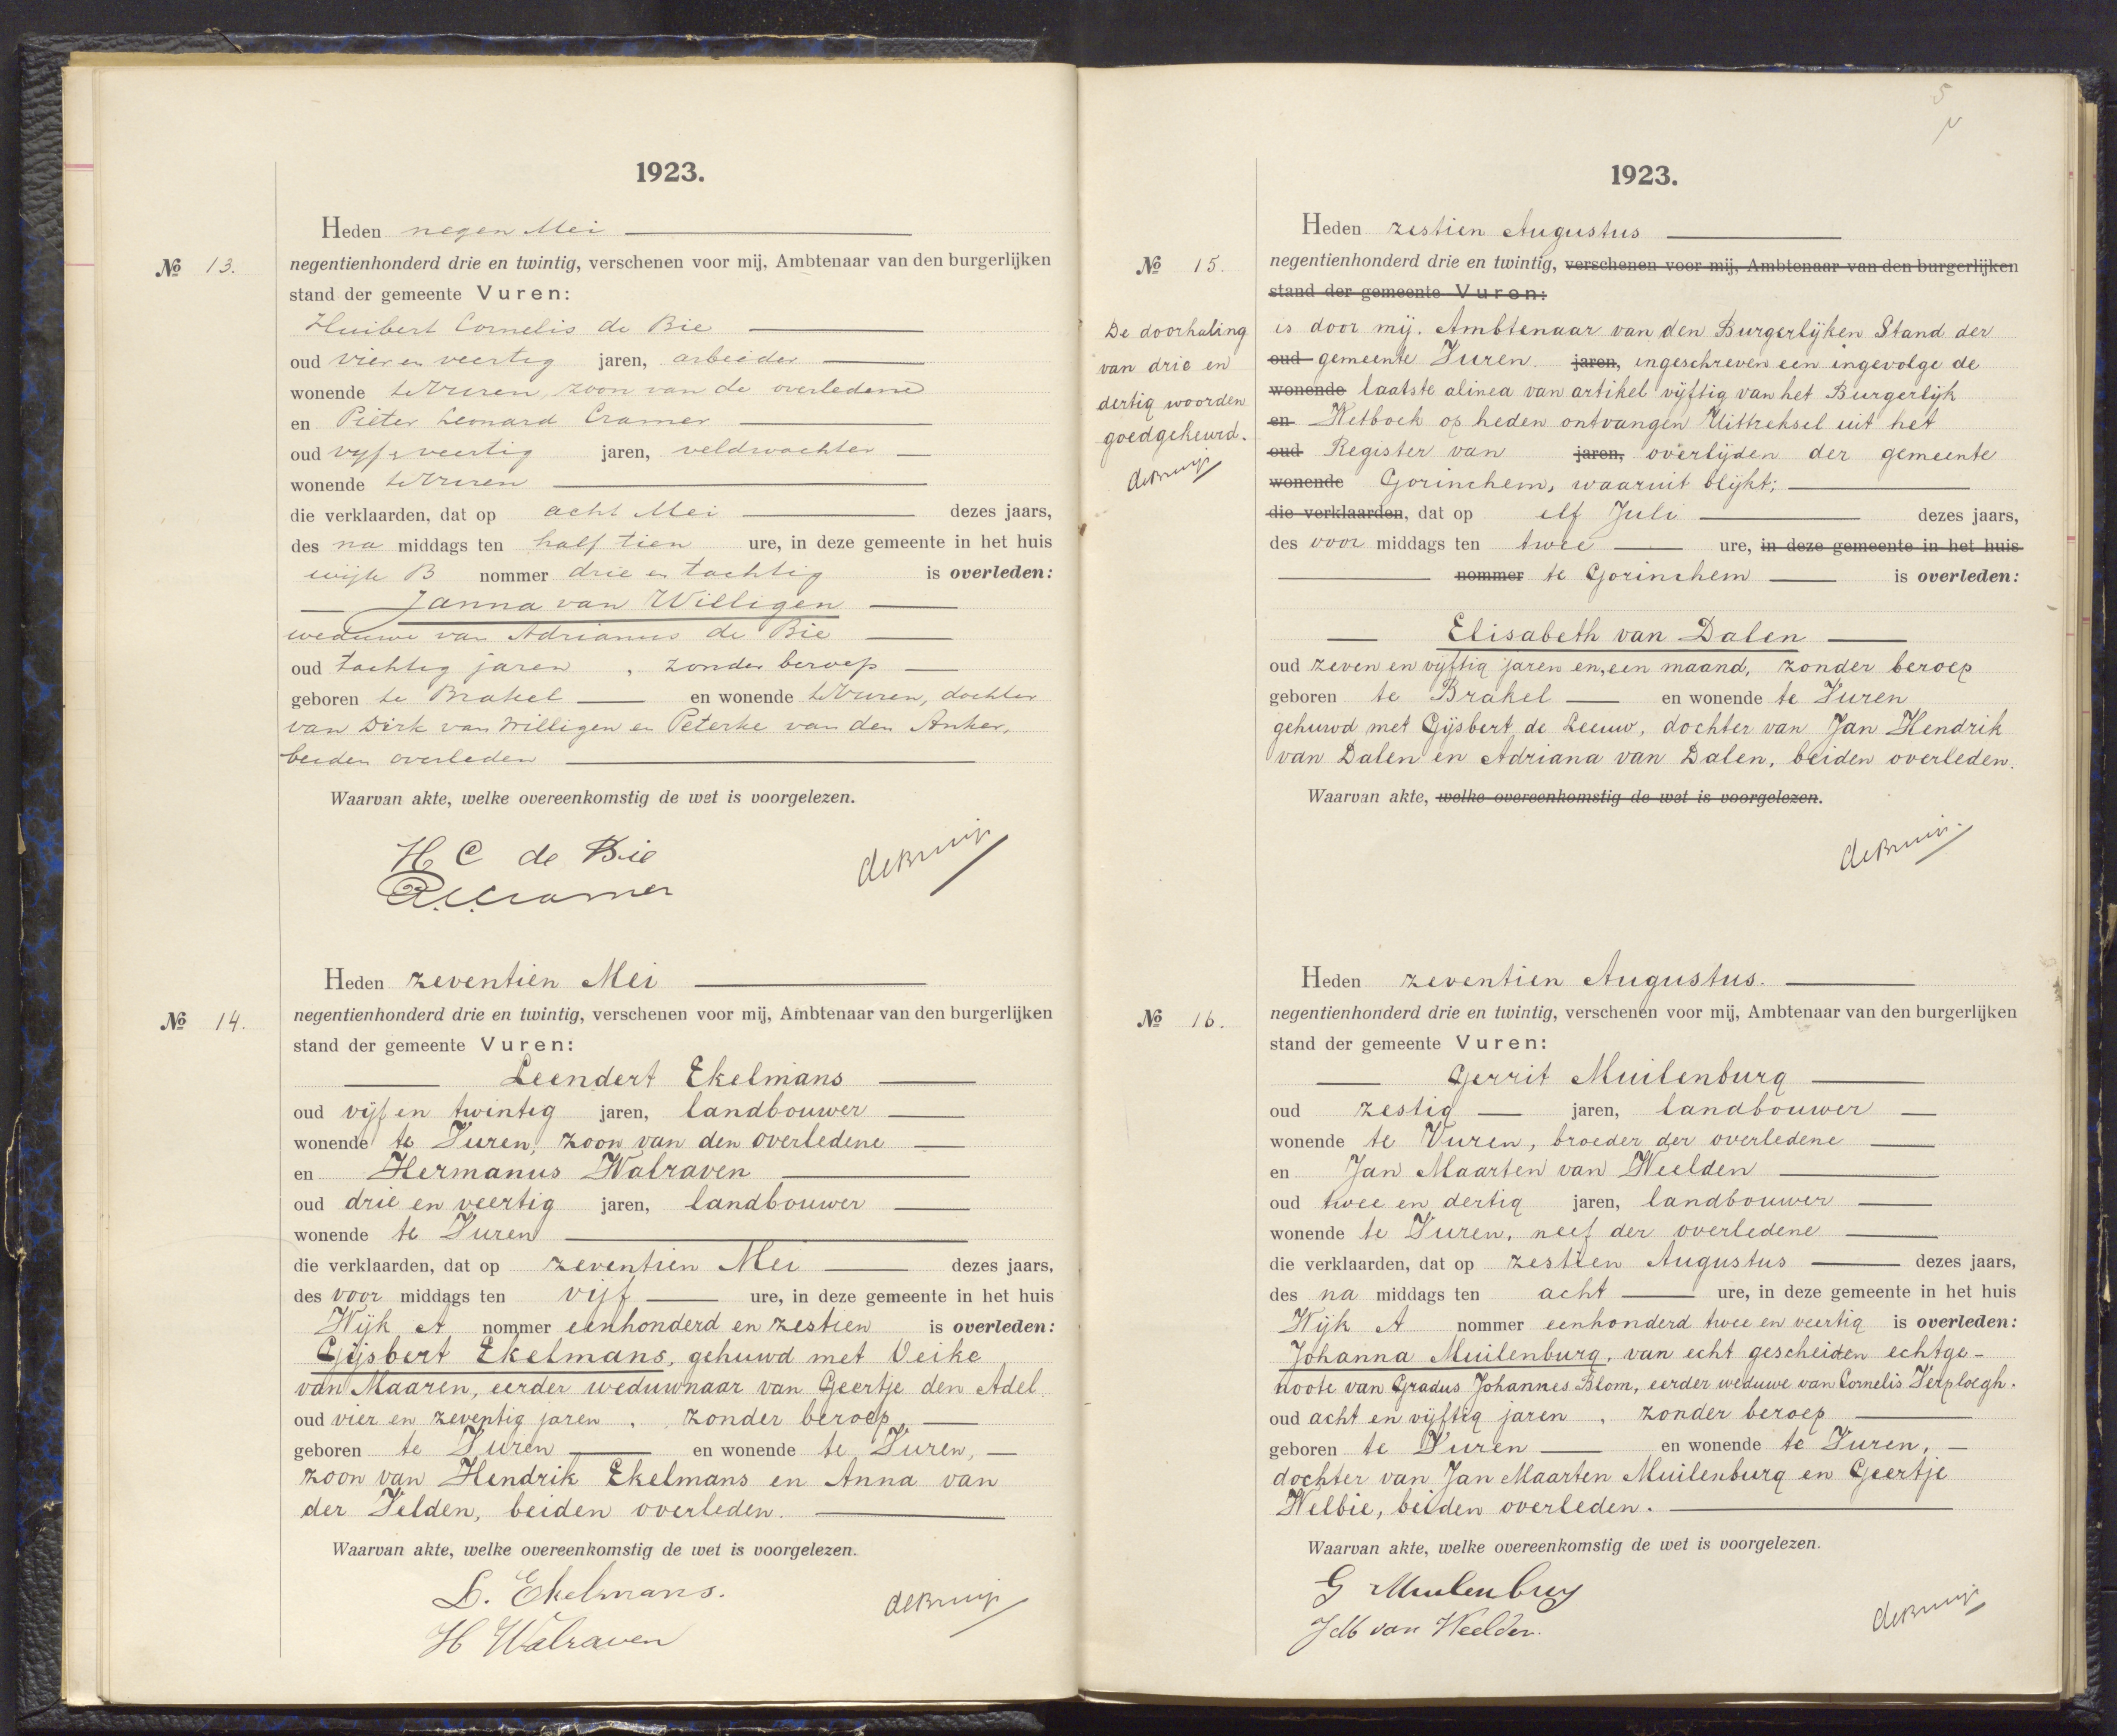 1923.
Heden negen Mei
No 13. negentienhonderd drie en twintig, verschenen voor mij, Ambtenaar van den burgerlijken
stand der gemeente Vuren:
Huibert Cornelis de Bie
oud vier en veertig jaren, arbeider
wonende te Vuren, zoon van de overledene
en Pieter Leonard Cramer
oud vijf & veertig jaren, veldwachter
wonende te Vuren
die verklaarden, dat op acht Mei dezes jaars,
des na middags ten half tien ure, in deze gemeente in het huis
wijk B nommer drie en tachtig is overleden:
Janna van Willigen
weduwe van Adrianus de Bie
oud tachtig jaren, zonder beroep
geboren te Brakel en wonende te Vuren, dochter
van Dirk van Willigen en Peterke van den Anker,
beiden overleden
Waarvan akte, welke overeenkomstig de wet is voorgelezen.
H C de Bie
P.L. Cramer
de Bruijn
Heden zeventien Mei
No 14. negentienhonderd drie en twintig, verschenen voor mij, Ambtenaar van den burgerlijken
stand der gemeente Vuren:
Leendert Ekelmans
oud vijf en twintig jaren, landbouwer
wonende te Vuren, zoon van den overledene
en Hermanus Walraven
oud drie en veertig jaren, landbouwer
wonende te Vuren
die verklaarden, dat op zeventien Mei dezes jaars,
des voor middags ten vijf ure, in deze gemeente in het huis
Wijk A nommer eenhonderd en zestien is overleden:
Gijsbert Ekelmans, gehuwd met Veike
van Maaren, eerder weduwnaar van Geertje den Adel
oud vier en zeventig jaren, zonder beroep,
geboren te Vuren en wonende te Vuren,
zoon van Hendrik Ekelmans en Anna van
der Velden, beiden overleden.
Waarvan akte, welke overeenkomstig de wet is voorgelezen.
L. Ekelmans.
H Walraven
de Bruijn
5
1923.
Heden zestien Augustus
No 15. negentienhonderd drie en twintig, verschenen voor mij, Ambtenaar van den burgerlijken
stand der gemeente Vuren:
De doorhaling
van drie en
dertig woorden
goedgekeurd.
de Bruijn
is door mij. Ambtenaar van den Burgerlijken Stand der
oud gemeente Vuren. jaren, ingeschreven een ingevolge de
wonende laatste alinea van artikel vijftig van het Burgerlijk
en Wetboek op heden ontvangen Uittreksel uit het
oud Register van jaren, overlijden der gemeente
wonende Gorinchem, waaruit blijkt;
die verklaarden, dat op elf Juli dezes jaars,
des voor middags ten twee ure, in deze gemeente in het huis
nommer te Gorinchem is overleden:
Elisabeth van Dalen
oud zeven en vijftig jaren en, een maand, zonder beroep
geboren te Brakel en wonende te Vuren
gehuwd met Gijsbert de Leeuw, dochter van Jan Hendrik
van Dalen en Adriana van Dalen, beiden overleden.
Waarvan akte, welke overeenkomstig de wet is voorgelezen.
de Bruijn.
Heden zeventien Augustus.
No 16. negentienhonderd drie en twintig, verschenen voor mij, Ambtenaar van den burgerlijken
stand der gemeente Vuren:
Gerrit Muilenburg
oud zestig jaren, landbouwer
wonende te Vuren, broeder der overledene
en Jan Maarten van Weelden
oud twee en dertig jaren, landbouwer
wonende te Vuren, neef der overledene
die verklaarden, dat op zestien Augustus dezes jaars,
des na middags ten acht ure, in deze gemeente in het huis
Wijk A nommer eenhonderd twee en veertig is overleden:
Johanna Muilenburg, van echt gescheiden echtge-
noote van Gradus Johannes Blom, eerder weduwe van Cornelis Verploegh.
oud acht en vijftig jaren, zonder beroep
geboren te Vuren en wonende te Vuren,
dochter van Jan Maarten Muilenburg en Geertje
Welbie, beiden overleden.
Waarvan akte, welke overeenkomstig de wet is voorgelezen.
G Muilenburg
JM van Weelden.
de Bruijn